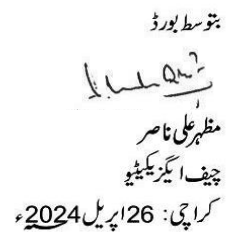 بتوسط بورڈ
مظہر علی ناصر
چیف ایگزیکیٹیو
کراچی: 26 اپریل 2024ء